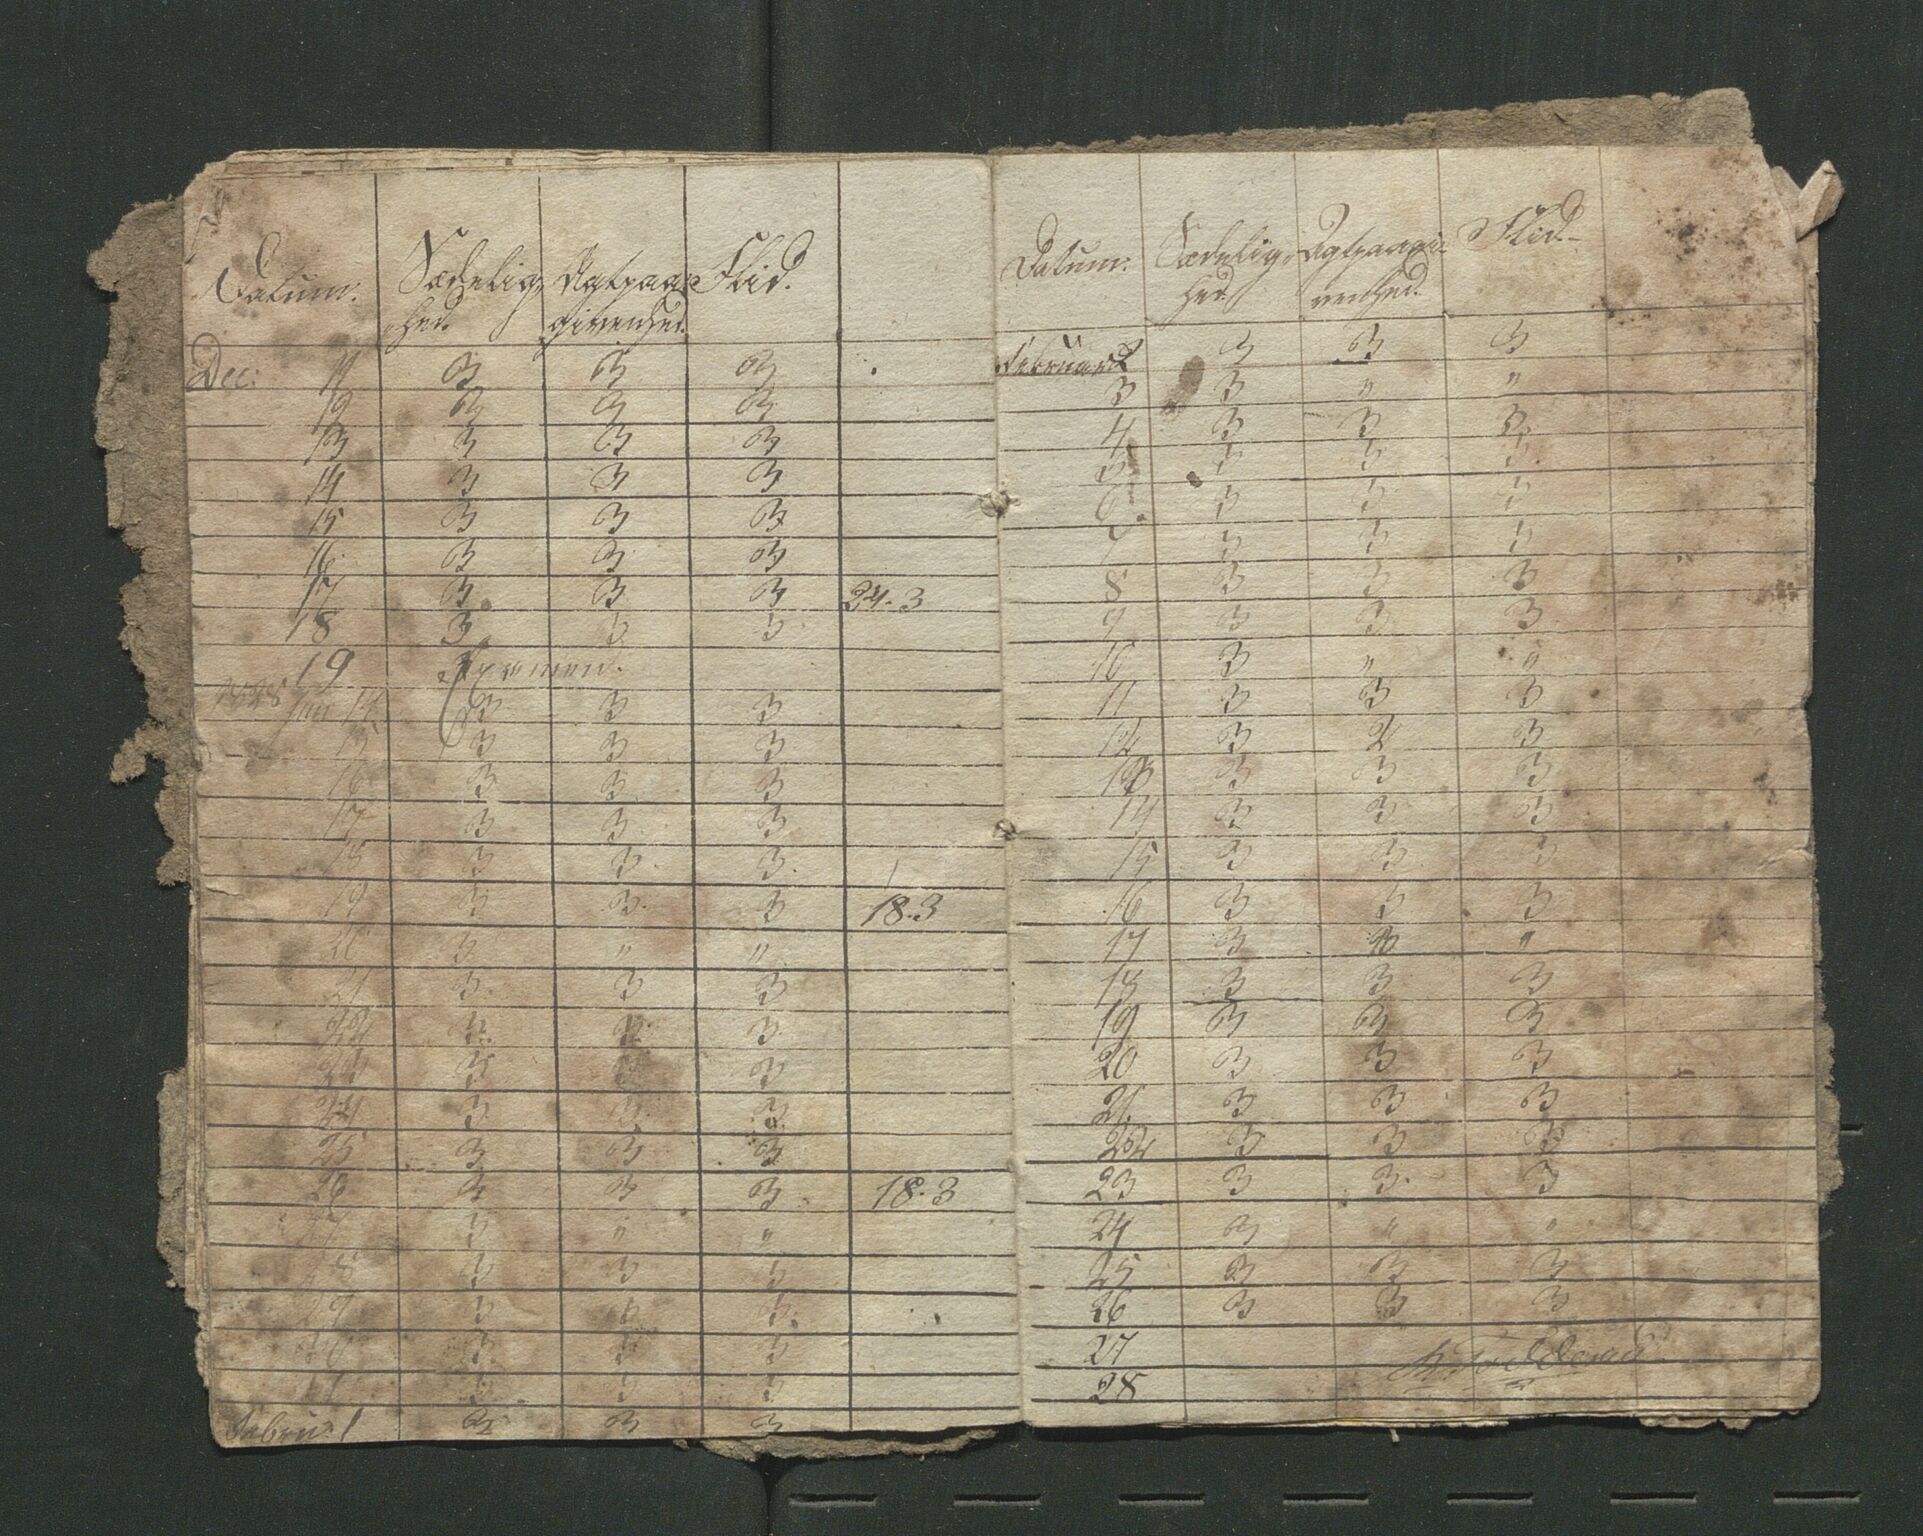 Datum. Sædelig- Agtpaa- Flid.
hed. givenhed.
Dec: 11 3 3 3
12 3 3 3
13 3 3 3
14 3 3 3
15 3 3 3
16 3 3 3
17 3 3 3 24.3
18 3 3 3
19 Examen.
1828 Jan 14 3 3 3
15 3 3 3
16 3 3 3
17 3 3 3
18 3 3 3
19 3 3 3 18.3
20 3 " "
21 3 3 3
22 3
23 3 3
24 3 3 3
25 3 3 3
26 3 3 3 18.3
27 3 " "
28 3 3 3
29 3 3 3
30 3 3 3
3 3 3
Febru: 1 3 3 3
Datum. Sædelig- Agtpaagi- Flid
hed. venhed.
Februar 2 3 3 3
3 3 " "
4 3 3 3
5 3 3 3
6 3 3 3
7 3 3 3
8 3 3 3
9 3 3 3
10 3 " "
11 3 3 3
12 3 2 3
13 3 3 3
14 3 3 3
15 3 3 3
16 3 3 3
17 3 "
18 3 3 3
19 3 3 3
20 3 3 3
21 3 3 3
22 3 3 3
23 3 3 3
24 3 " "
25 3 3 3
26 3 3 3
27
28